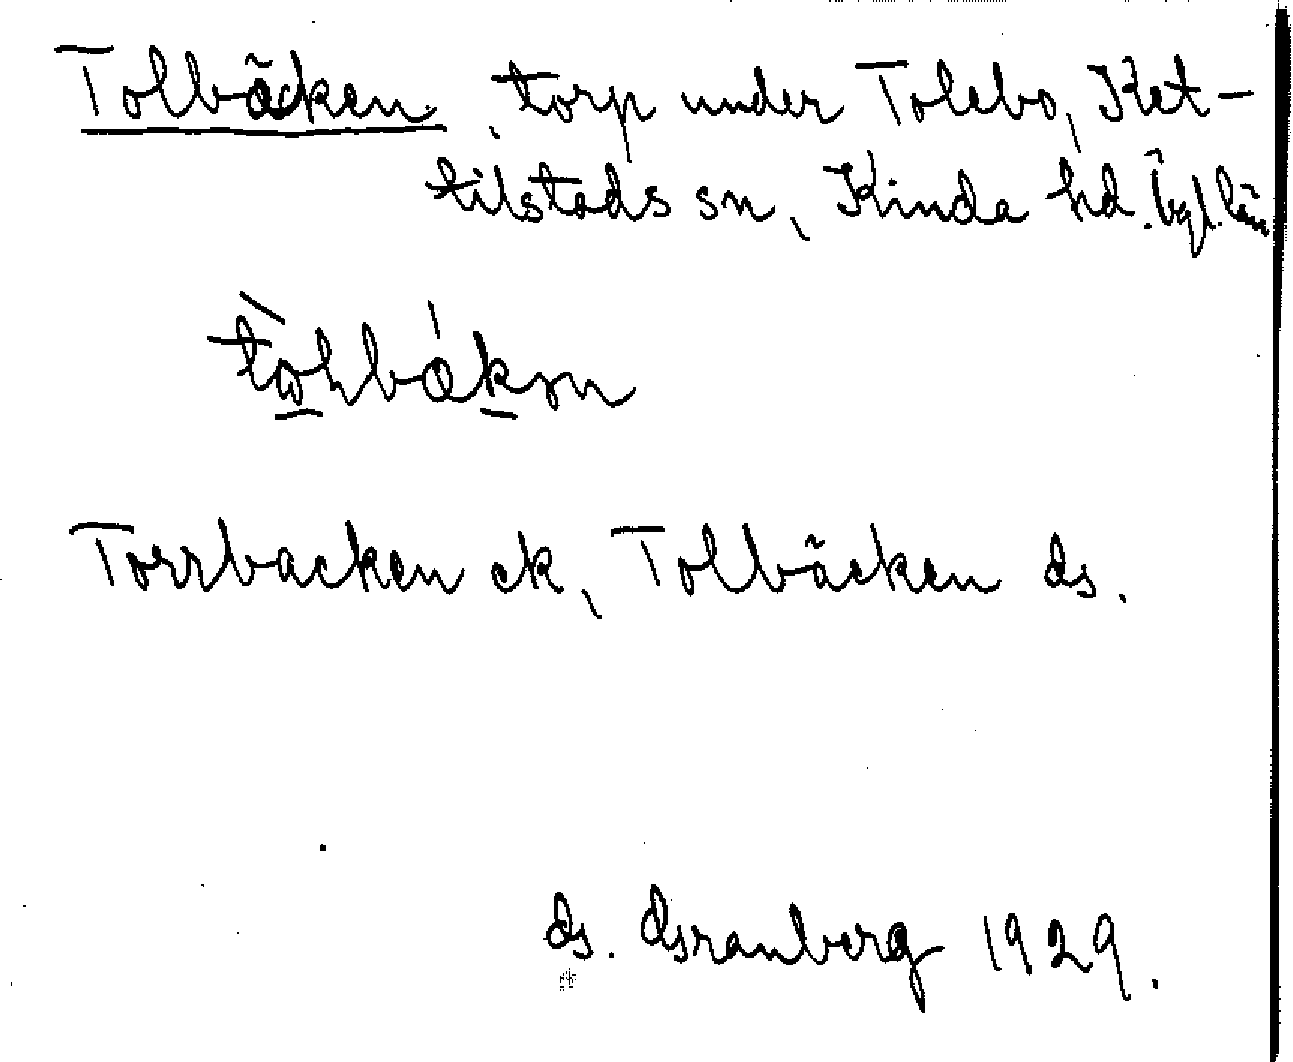 Tolbäcken, torp under Tolebo, Ket-
tilstads sn, Kinda hd. Ögl. län
Torrbacken ek, Tolbäcken ds.
G. Granberg 1929.